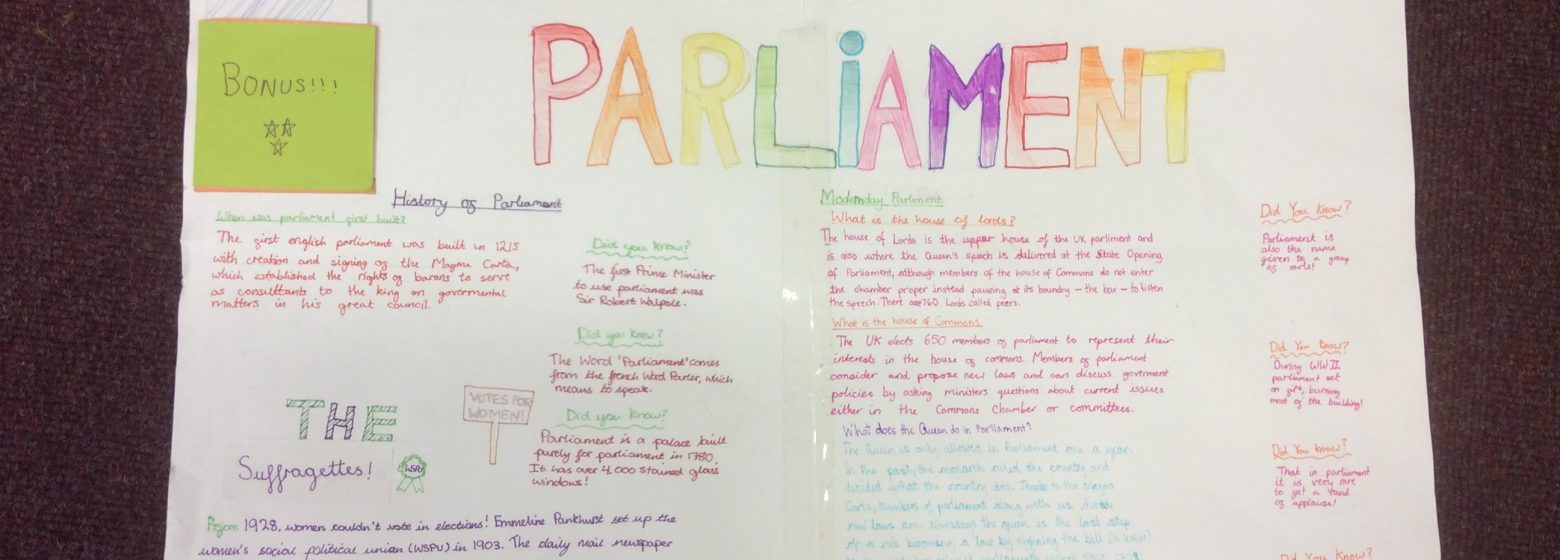 BONUS!!!
PARLIAMENT
History of Parliament
When was parliament first built?
The first english parliament was built in 1215
with creation and signing of the Magna Carta,
which established the rights of barons to serve
as consultants to the king on govermental
matters in his great council.
Did you know?
The first Prime Minister
to use parliament was
Sir Robert Walpole.
Did you know?
The Word 'Parliament' comes
from the french Word Parler, which
means to speak.
Did you know?
Parliament is a palace built
purely for parliament in 1780
It has over 4,000 stained glass
windows!
VOTES FOR
WOMEN!
THE
Suffragettes!
WSPU
Before 1928, women couldn't vote in elections! Emmeline Pankhurst set up the
women's social political union (WSPU) in 1903. The daily mail newspaper
Modernday Parliment
What is the house of lords?
The house of Lords is the upper house of the UK parliment and
is also where the Queen's speech is delivered at the State Opening
of Parliament, although members of the house of Commons do not enter
the chamber proper instead pausing at its boundry - the bar - to listen
the speech. There are 760 Lords called peers.
What is the house of Commons
The UK elects 650 members of parliament to represent their
interests in the house of commons. Members of parliament
consider and propose new laws and can discuss goverment
policies by asking ministers questions about current issues
either in the Commons Chamber or committees.
What does the Queen do in Parliament?
The Queen is only allowed in Parliament one a year.
In the past, the monarch ruled the country and
decided what the country does. Thanks to the Magna
Carta, Members of parliament along with us decide
new laws are. Nowadays the queen is the last step
of a rule becoming a law by signing the bill
Did You Know?
Parliament is
also the name
given to a group
of owls!
Did You Know?
During WW II
parliament set
on fire, burning
most of the building!
Did You Know?
That in parliament
it is very rare
to get a round
of applause!
Did You Know?